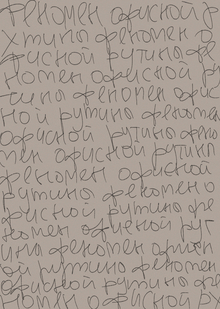 Феномен офисной р
утины феномен о
фисной рутины фе
номен офисной р
тины феномен офис
ной рутины феноме
офисной рутины фено
мен офисной рутины
феномен офисной
рутины феномен о
фисной рутины фе
номен офисной рут
ины феномен офисн
ой рутины феномен
офисной рутины фено
мен офисной рутины